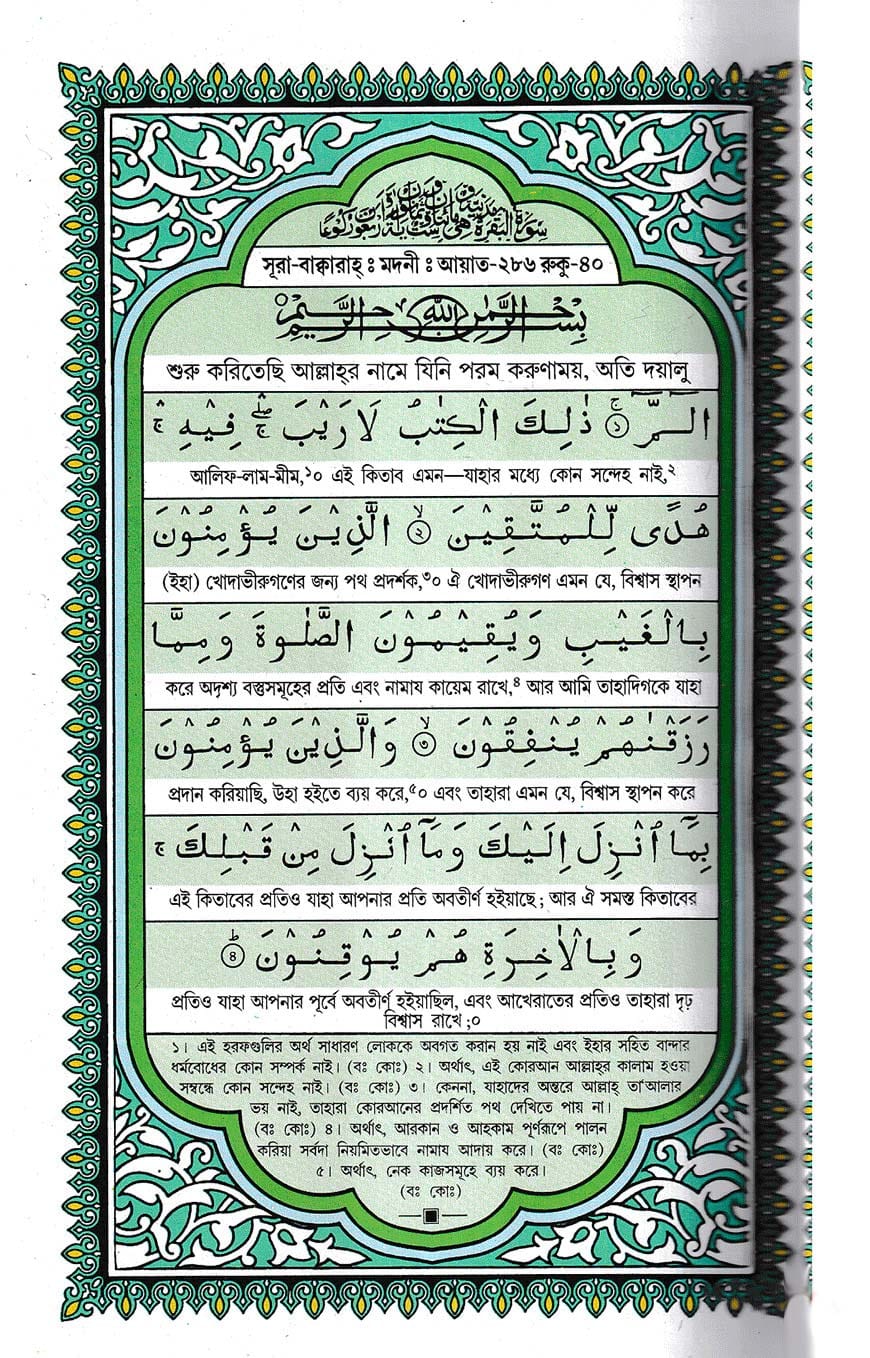 سورة البقرة
সূরা-বাক্বারাহ্ ঃ মদনী ঃ আয়াত-২৮৬ রুকু-৪০
بِسْمِ اللّٰهِ الرَّحْمٰنِ الرَّحِيْمِ
শুরু করিতেছি আল্লাহ্‌র নামে যিনি পরম করুণাময়, অতি দয়ালু
الٓـمّٓ ۚ‏﴿۱﴾ ذٰلِكَ الْكِتٰبُ لَا رَيْبَ ۛۖۚ فِيْهِ ۛۚ
আলিফ-লাম-মীম,১০ এই কিতাব এমন—যাহার মধ্যে কোন সন্দেহ নাই,২
هُدًى لِّلْمُتَّقِيْنَ ۙ﴿۲﴾ الَّذِيْنَ يُؤْمِنُوْنَ
(ইহা) খোদাভীরুগণের জন্য পথ প্রদর্শক,৩০ ঐ খোদাভীরুগণ এমন যে, বিশ্বাস স্থাপন
بِالْغَيْبِ وَيُقِيْمُوْنَ الصَّلٰوةَ وَمِمَّا
করে অদৃশ্য বস্তুসমূহের প্রতি এবং নামায কায়েম রাখে,৪ আর আমি তাহাদিগকে যাহা
رَزَقْنٰهُمْ يُنْفِقُوْنَ ۙ﴿۳﴾ وَالَّذِيْنَ يُؤْمِنُوْنَ
প্রদান করিয়াছি, উহা হইতে ব্যয় করে,৫০ এবং তাহারা এমন যে, বিশ্বাস স্থাপন করে
بِمَآ اُنْزِلَ اِلَيْكَ وَمَآ اُنْزِلَ مِنْ قَبْلِكَ ۚ
এই কিতাবের প্রতিও যাহা আপনার প্রতি অবতীর্ণ হইয়াছে; আর ঐ সমস্ত কিতাবের
وَبِالْاٰخِرَةِ هُمْ يُوْقِنُوْنَ ؕ﴿۴﴾
প্রতিও যাহা আপনার পূর্বে অবতীর্ণ হইয়াছিল, এবং আখেরাতের প্রতিও তাহারা দৃঢ়
বিশ্বাস রাখে;০
১। এই হরফগুলির অর্থ সাধারণ লোককে অবগত করান হয় নাই এবং ইহার সহিত বান্দার
ধর্মবোধের কোন সম্পর্ক নাই। (বঃ কোঃ) ২। অর্থাৎ, এই কোরআন আল্লাহ্‌র কালাম হওয়া
সম্বন্ধে কোন সন্দেহ নাই। (বঃ কোঃ) ৩। কেননা, যাহাদের অন্তরে আল্লাহ্ তা'আলার
ভয় নাই, তাহারা কোরআনের প্রদর্শিত পথ দেখিতে পায় না।
(বঃ কোঃ) ৪। অর্থাৎ, আরকান ও আহকাম পূর্ণরূপে পালন
করিয়া সর্বদা নিয়মিতভাবে নামায আদায় করে। (বঃ কোঃ)
৫। অর্থাৎ, নেক কাজসমূহে ব্যয় করে।
(বঃ কোঃ)